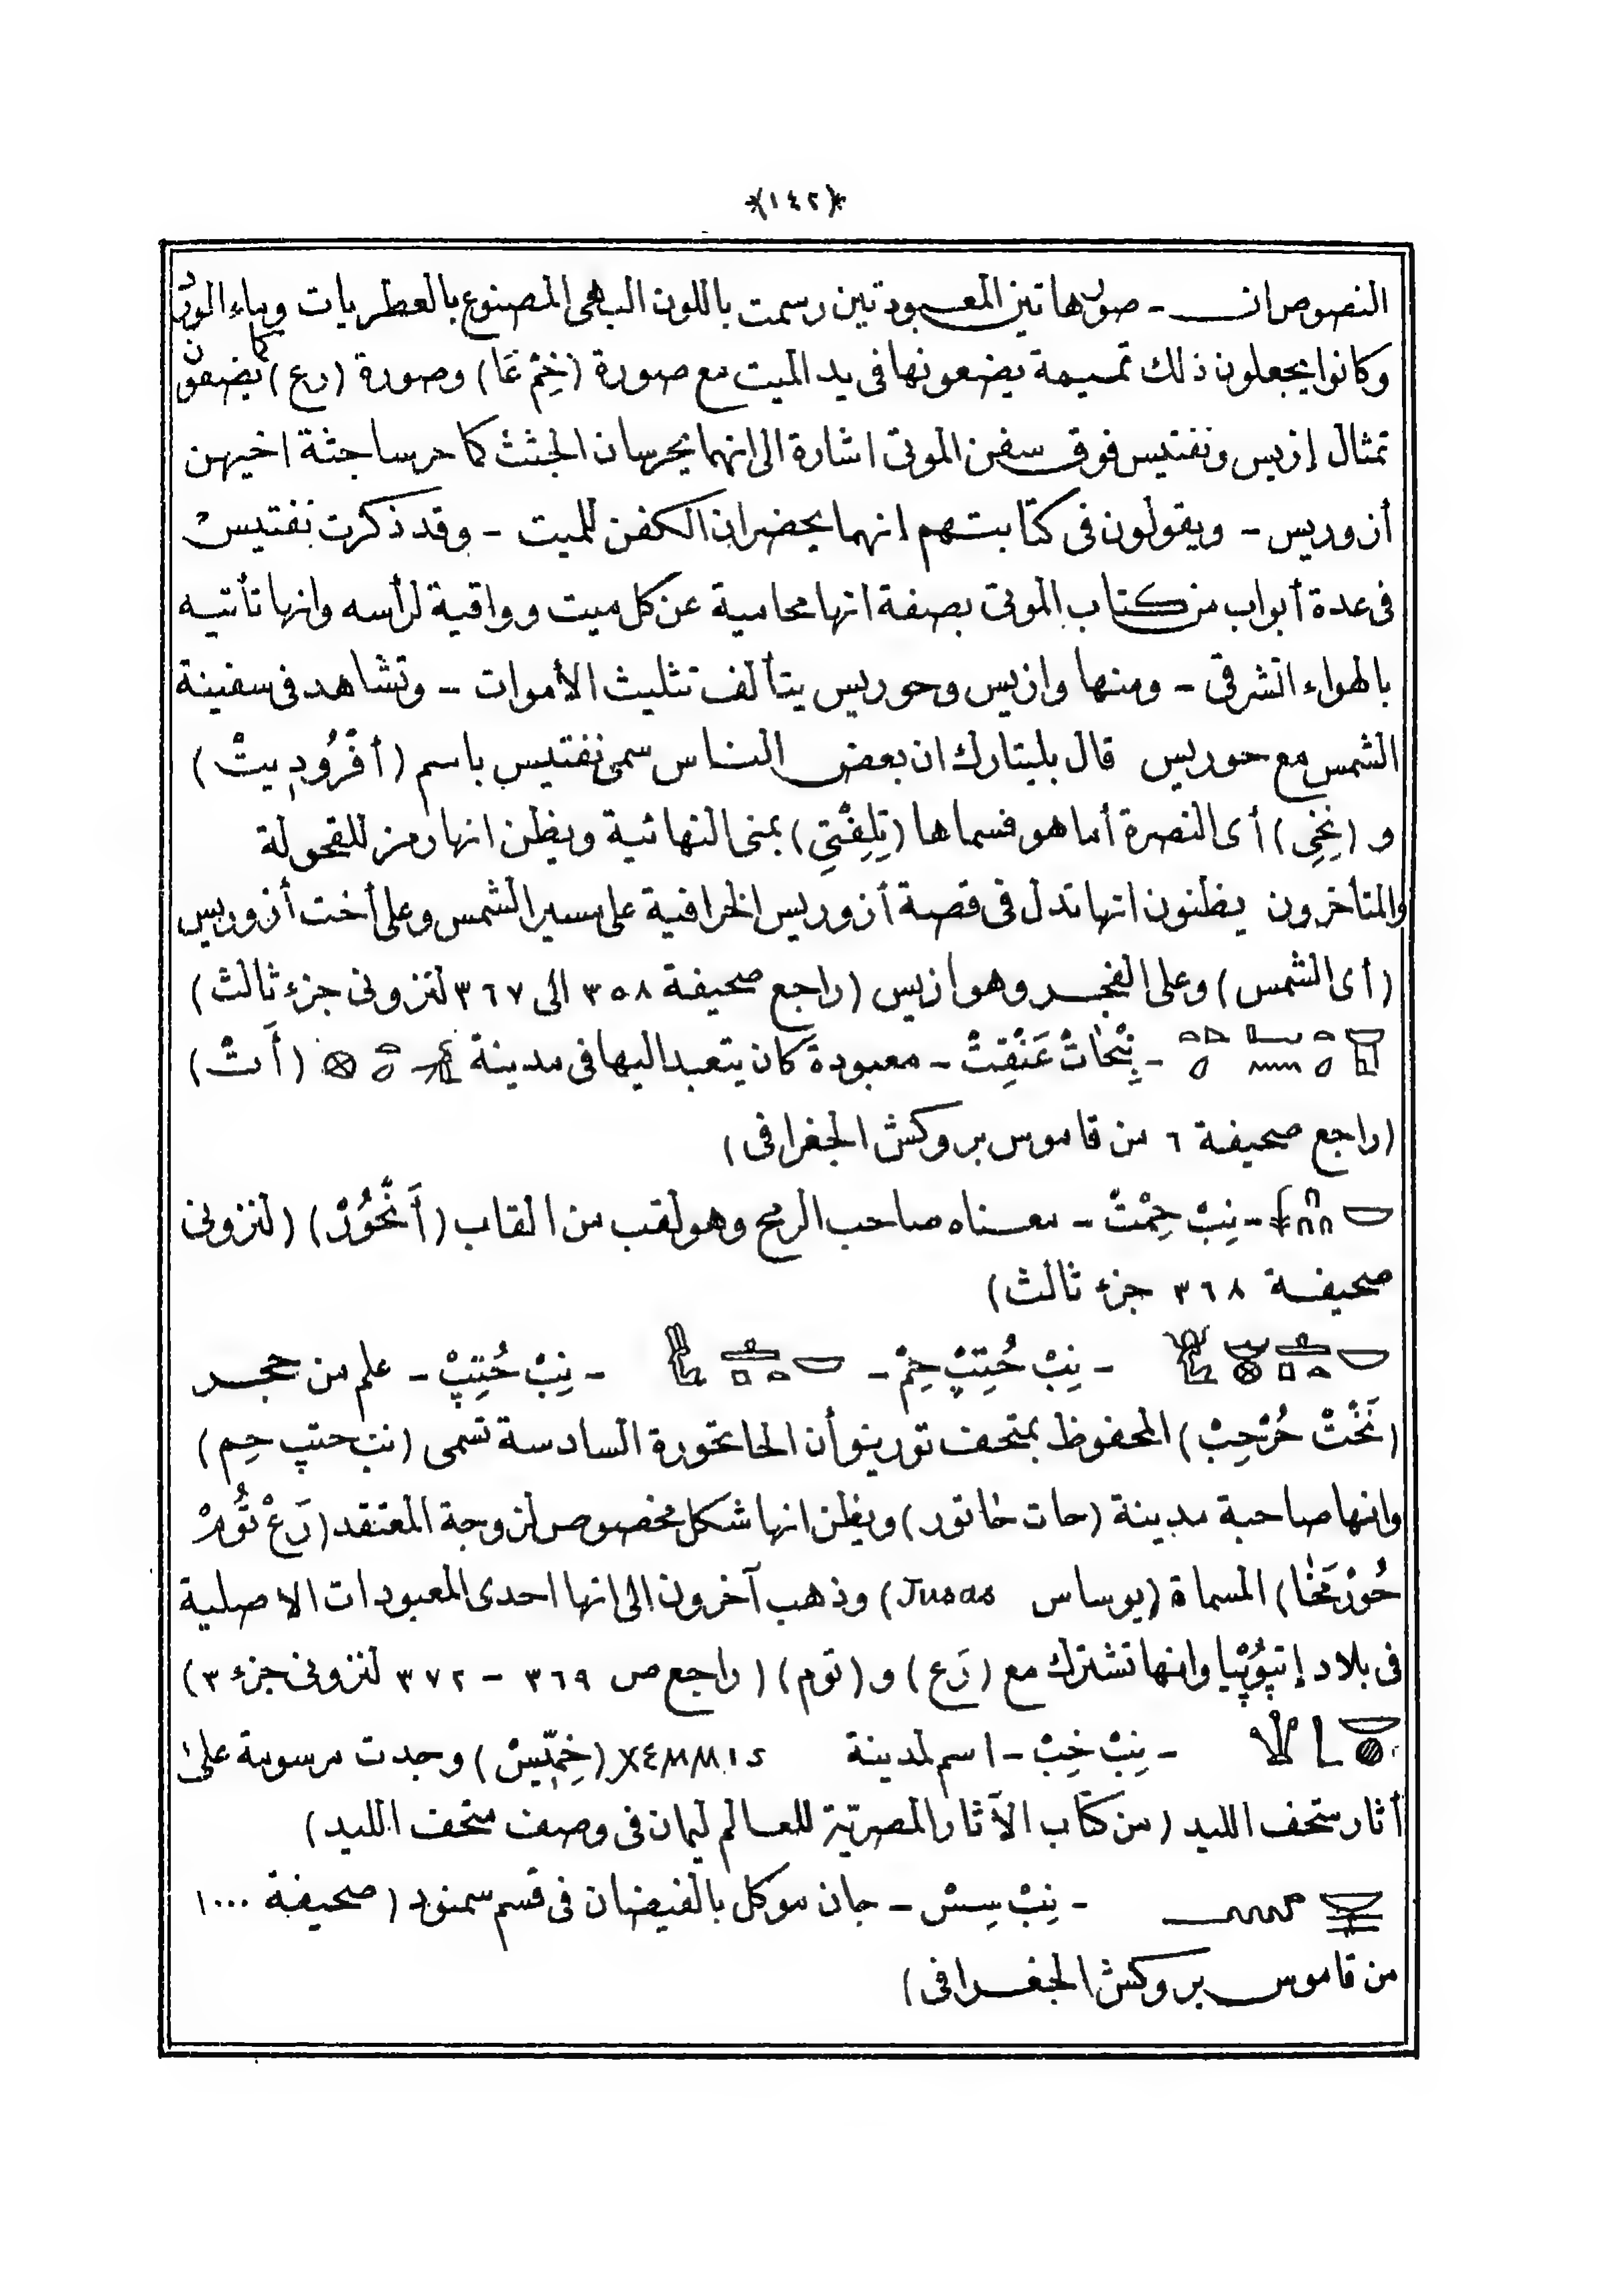 *(١٤٢)*
النصوص ان - صور هاتين المعبودتين رسمت باللون البهى المصنوع بالعطريات وبماء الورد
وكانوا يجعلون ذلك تميمة يضعونها فى يد الميت مع صورة (خِتْمْ عَا) وصورة (رع) كما يضعون
تمثال إزيس ونفتيس فوق سفن الموتى اشارة الى انهما يحرسان الجثث كما حرسا جثة اخيهن
أزوريس - ويقولون فى كتابتهم انهما يحضران الكفن للميت - وقد ذكرت نفتيس
فى عدة أبواب من كتاب الموتى بصفة انها محامية عن كل ميت وواقية لرأسه وانها تأتيه
بالهواء الشرقى - ومنها وازيس وحوريس يتألف تثليث الأموات - وتشاهد فى سفينة
الشمس مع حوريس قال بليتارك ان بعض الناس سمى نفتيس باسم (أفْرُودِيتْ)
و (نِخِى) أى النصرة أما هو فسماها (تِلِفْتِى) بمنى النهائية ويظن انها رمز للقحولة
والمتأخرون يظنون انها تدل فى قصة أزوريس الخرافية على مسير الشمس وعلى أخت أزوريس
(أى الشمس) وعلى الفجر وهو ازيس (راجع صحيفة ٣٥٨ الى ٣٦٧ لنزونى جزء ثالث)
- نِبْحَاتْ عَنْقِتْ - معبودة كان يتعبد اليها فى مدينة (أَتْ)
(راجع صحيفة ٦ من قاموس بروكش الجغرافى)
- نِبْ حِمْتْ - معناه صاحب الرمح وهو لقب من القاب (أَنْحُورْ) (لنزونى
صحيفة ٣٦٨ جزء ثالث)
- نِبْ حُتِپْ حِمْ - - نِبْ حُتِپْ - علم من حجر
(نَخْتْ حُرْحِبْ) المحفوظ بمتحف تورينو أن الحاتحورة السادسة تسمى (نب حتپ حِم)
وانها صاحبة مدينة (حات حاتور) ويظن انها شكل مخصوص لزوجة المعتقد (رَعْ تُومْ
حُورْمَخَا) المسماة (يوساس Jusas) وذهب آخرون الى انها احدى المعبودات الاصلية
فى بلاد إتيُوپْيا وانها تشترك مع (رَع) و (توم) (راجع ص ٣٦٩ - ٣٧٢ لنزونى جزء ٣)
- نِبْ خِبْ - اسم لمدينة (خِمِّيسْ) وجدت مرسومة على
أثار متحف الليد (من كتاب الآثار المصرية للعالم ليمان فى وصف متحف الليد)
- نِبْ سِسْ - جان موكل بالفيضان فى قسم سمنود (صحيفة ١٠٠٠
من قاموس بروكش الجغرافى)